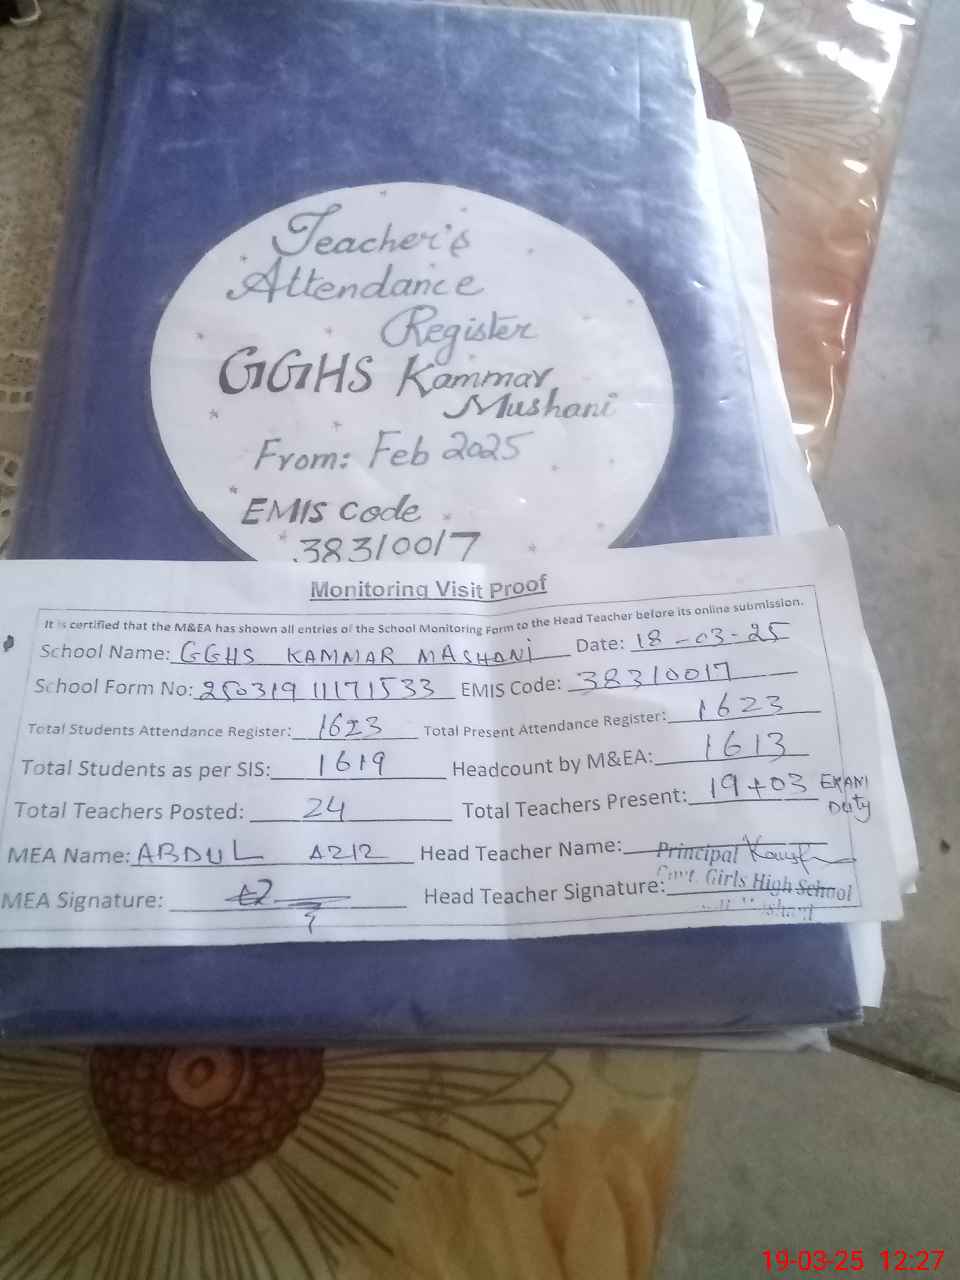 Teacher's
Attendance
Register
GGHS Kammar
Mushani
From: Feb 2025
EMIS Code
38310017
Monitoring Visit Proof
It is certified that the M&EA has shown all entries of the School Monitoring Form to the Head Teacher before its online submission.
School Name: GGHS KAMMAR MASHANI Date: 18-03-25
School Form No: 250319 11171533 EMIS Code: 38310017
Total Students Attendance Register: 1623 Total Present Attendance Register: 1623
Total Students as per SIS: 1619 Headcount by M&EA: 1613
Total Teachers Posted: 24 Total Teachers Present: 19+03 EXAM
Duty
MEA Name: ABDUL AZIZ Head Teacher Name: Principal
Govt. Girls High School
MEA Signature: Head Teacher Signature:
19-03-25 12:27